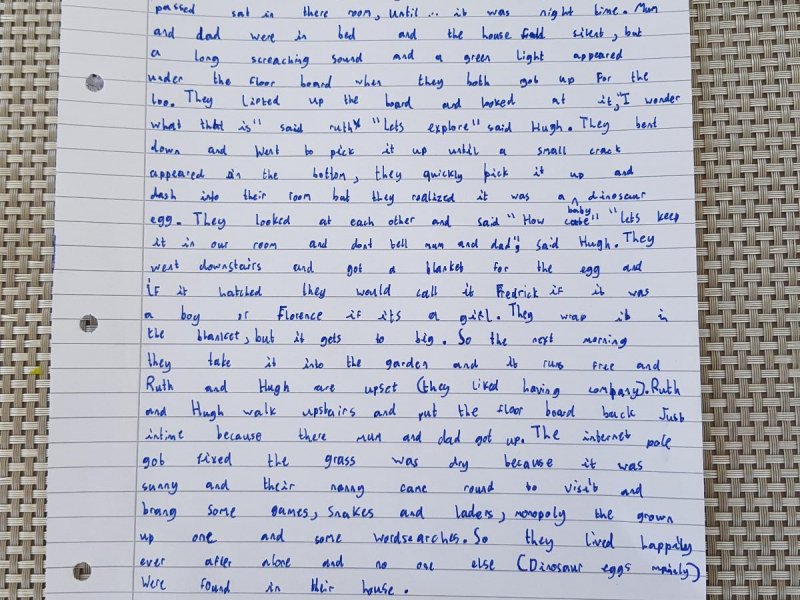 passed sat in there room, until... it was night time. Mum
and dad were in bed and the house silent, but
a long screaching sound and a green light appeared
under the floor board when they both got up for the
loo. They lifted up the board and looked at it, "I wonder
what that is" said ruth "lets explore" said Hugh. They bent
down and went to pick it up until a small crack
appeared in the bottom, they quickly pick it up and
dash into their room but they realized it was a baby dinosaur
egg. They looked at each other and said "How cute" "lets keep
it in our room and dont tell mum and dad", said Hugh. They
went downstairs and got a blanket for the egg and
if it hatched they would call it Fredrick if it was
a boy or Florence if its a girl. They wrap it in
the blanket, but it gets to big. So the next morning
they take it into the garden and it runs free and
Ruth and Hugh are upset (they liked having company). Ruth
and Hugh walk upstairs and put the floor board back Just
intime because there mum and dad got up. The internet pole
got fixed the grass was dry because it was
sunny and their nanny came round to visit and
brang some games, Snakes and laders, monopoly the grown
up one and some wordsearches. So they lived happily
ever after alone and no one else (Dinosaur eggs mainly)
Were found in their house.